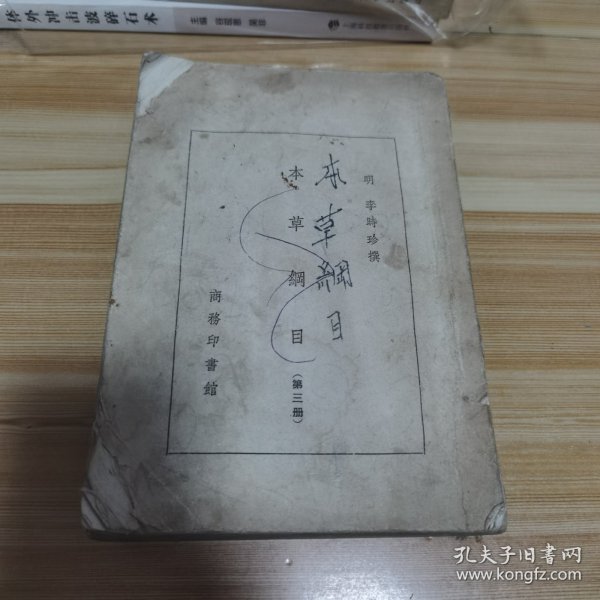 体外冲击波碎石术
主编
明 李時珍撰
本草綱目
本草綱目(第三册)
商務印書館
孔夫子旧书网
www.kongfz.com